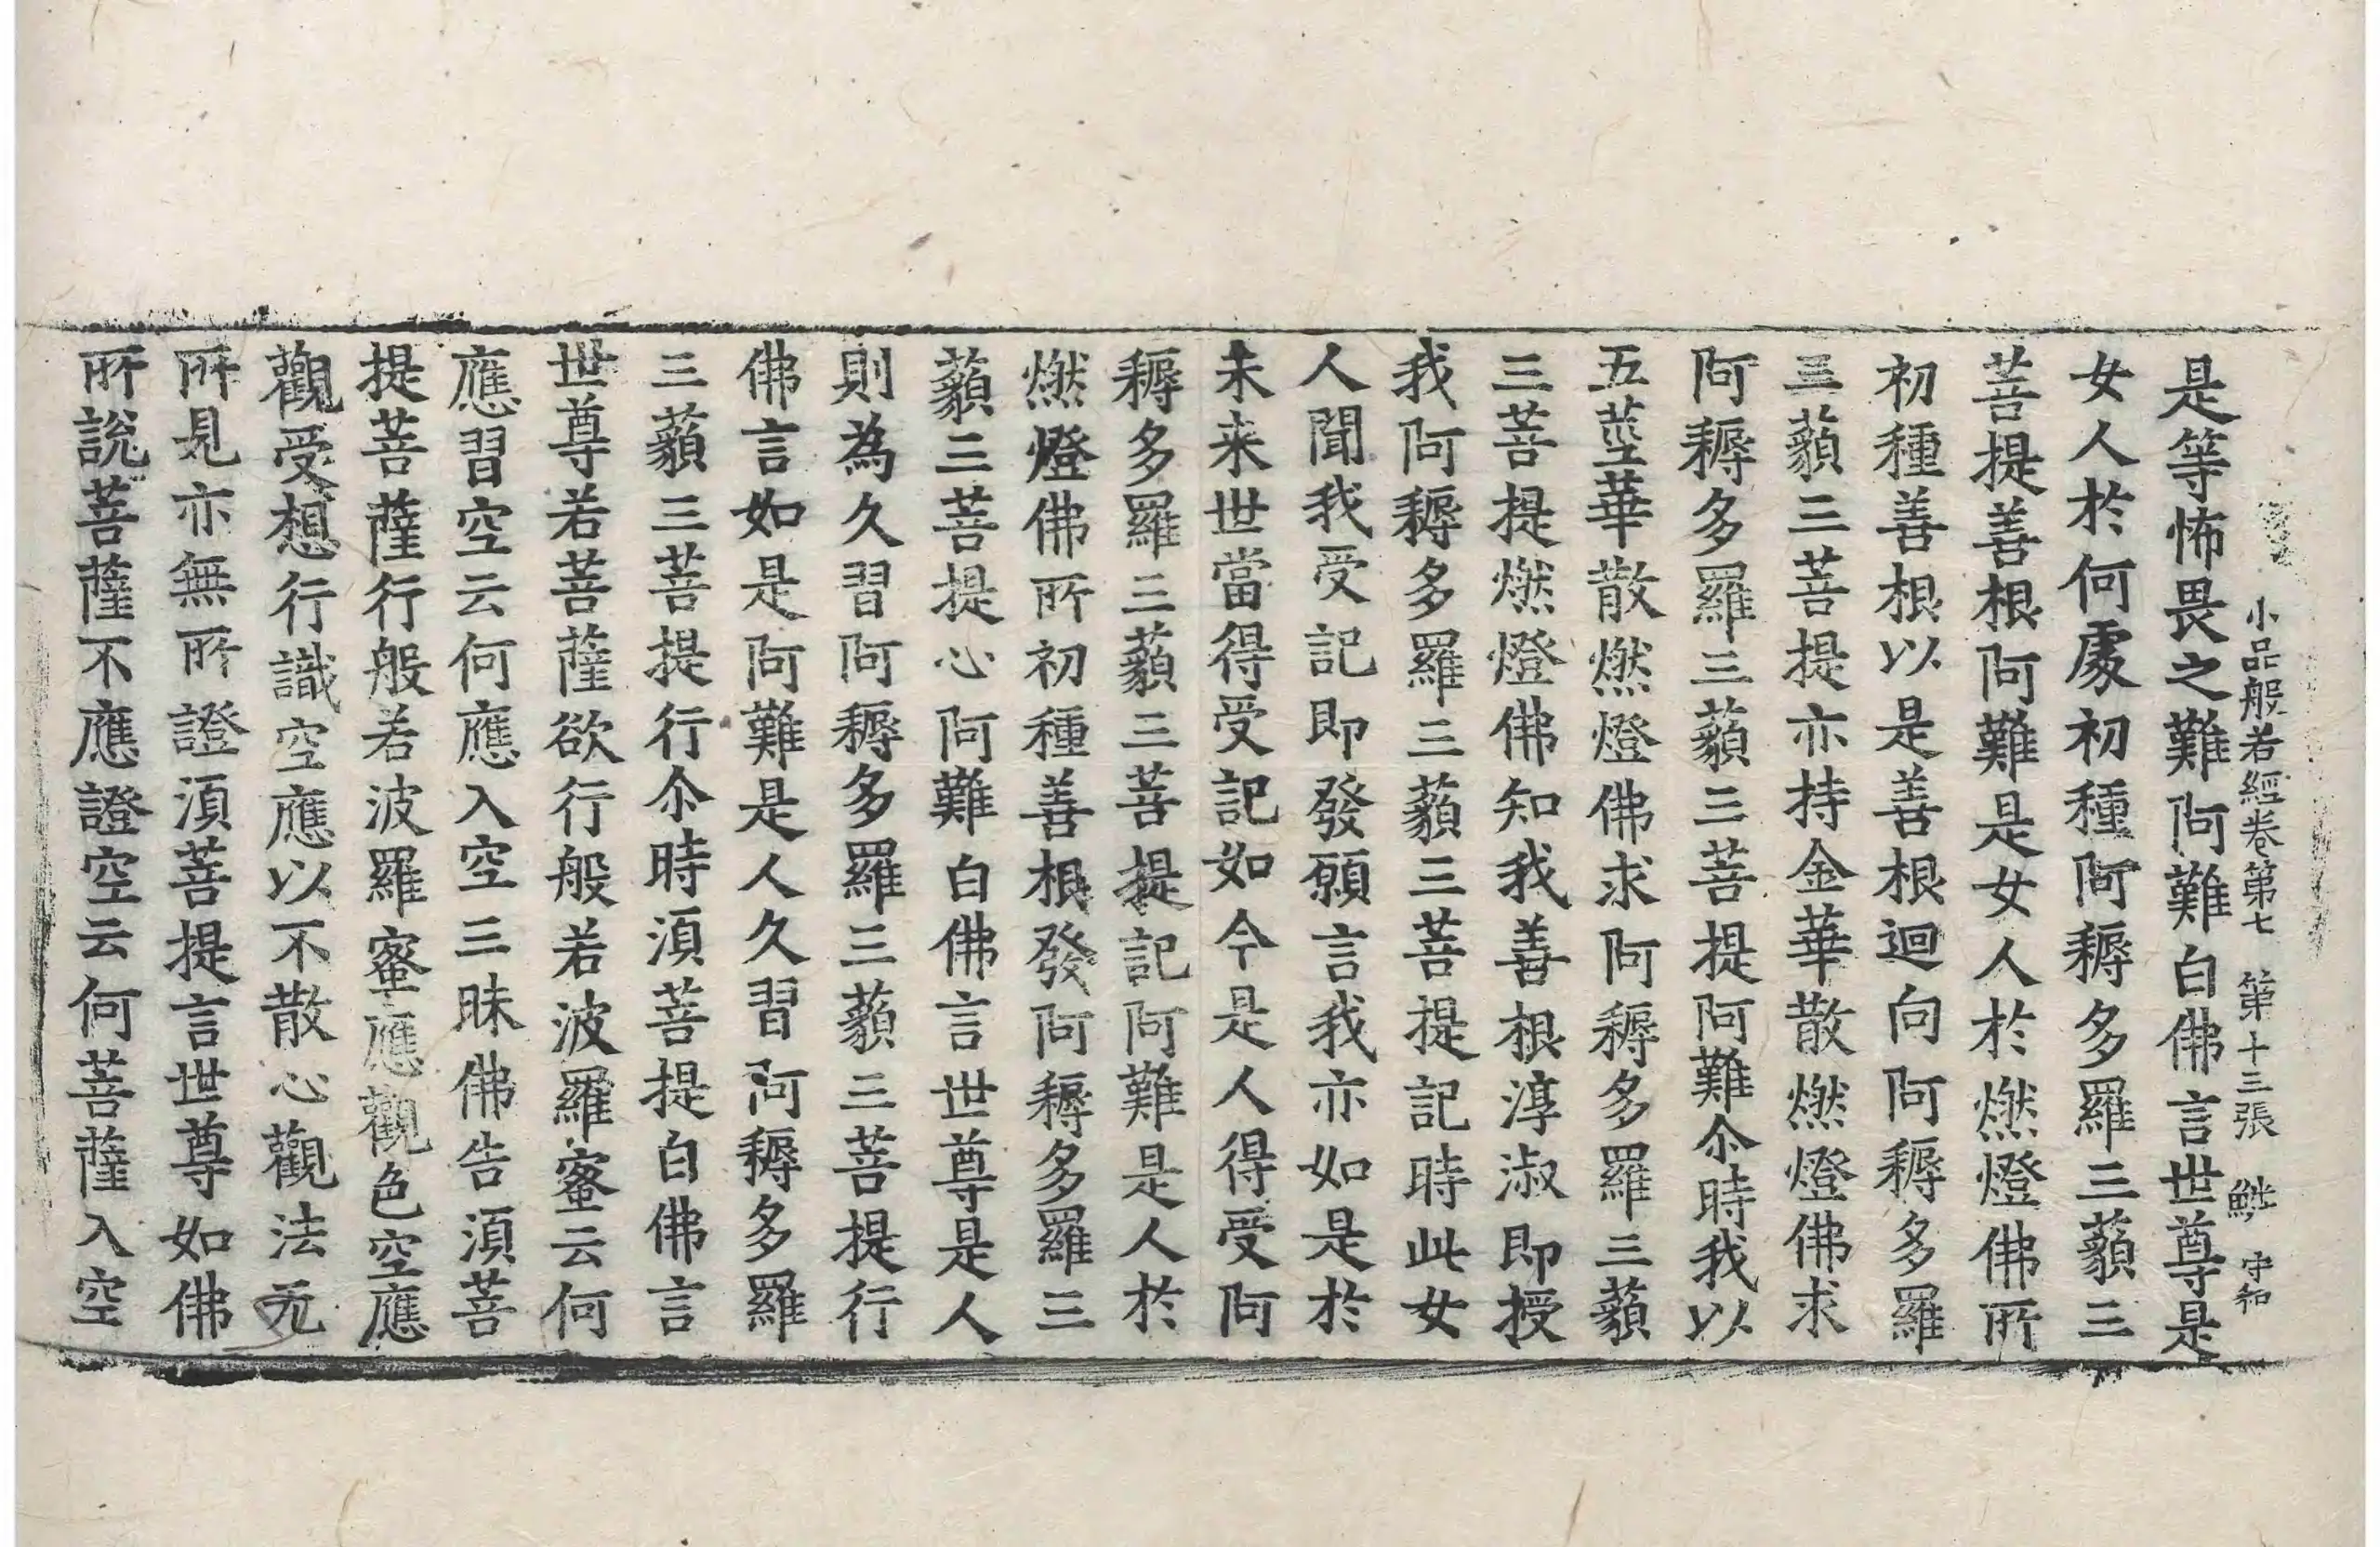 小品般若經卷第七 第十三張 守和
是等怖畏之難阿難白佛言世尊是
女人於何處初種阿耨多羅三藐三
菩提善根阿難是女人於燃燈佛所
初種善根以是善根迴向阿耨多羅
三藐三菩提亦持金華散燃燈佛求
阿耨多羅三藐三菩提阿難尒時我以
五莖華散燃燈佛求阿耨多羅三藐
三菩提燃燈佛知我善根淳淑即授
我阿耨多羅三藐三菩提記時此女
人聞我受記即發願言我亦如是於
未来世當得受記如今是人得受阿
耨多羅三藐三菩提記阿難是人於
燃燈佛所初種善根發阿耨多羅三
藐三菩提心阿難白佛言世尊是人
則為久習阿耨多羅三藐三菩提行
佛言如是阿難是人久習阿耨多羅
三藐三菩提行尒時湏菩提白佛言
世尊若菩薩欲行般若波羅蜜云何
應習空云何應入空三昧佛告湏菩
提菩薩行般若波羅蜜應觀色空應
觀受想行識空應以不散心觀法无
所見亦無所證湏菩提言世尊如佛
所說菩薩不應證空云何菩薩入空